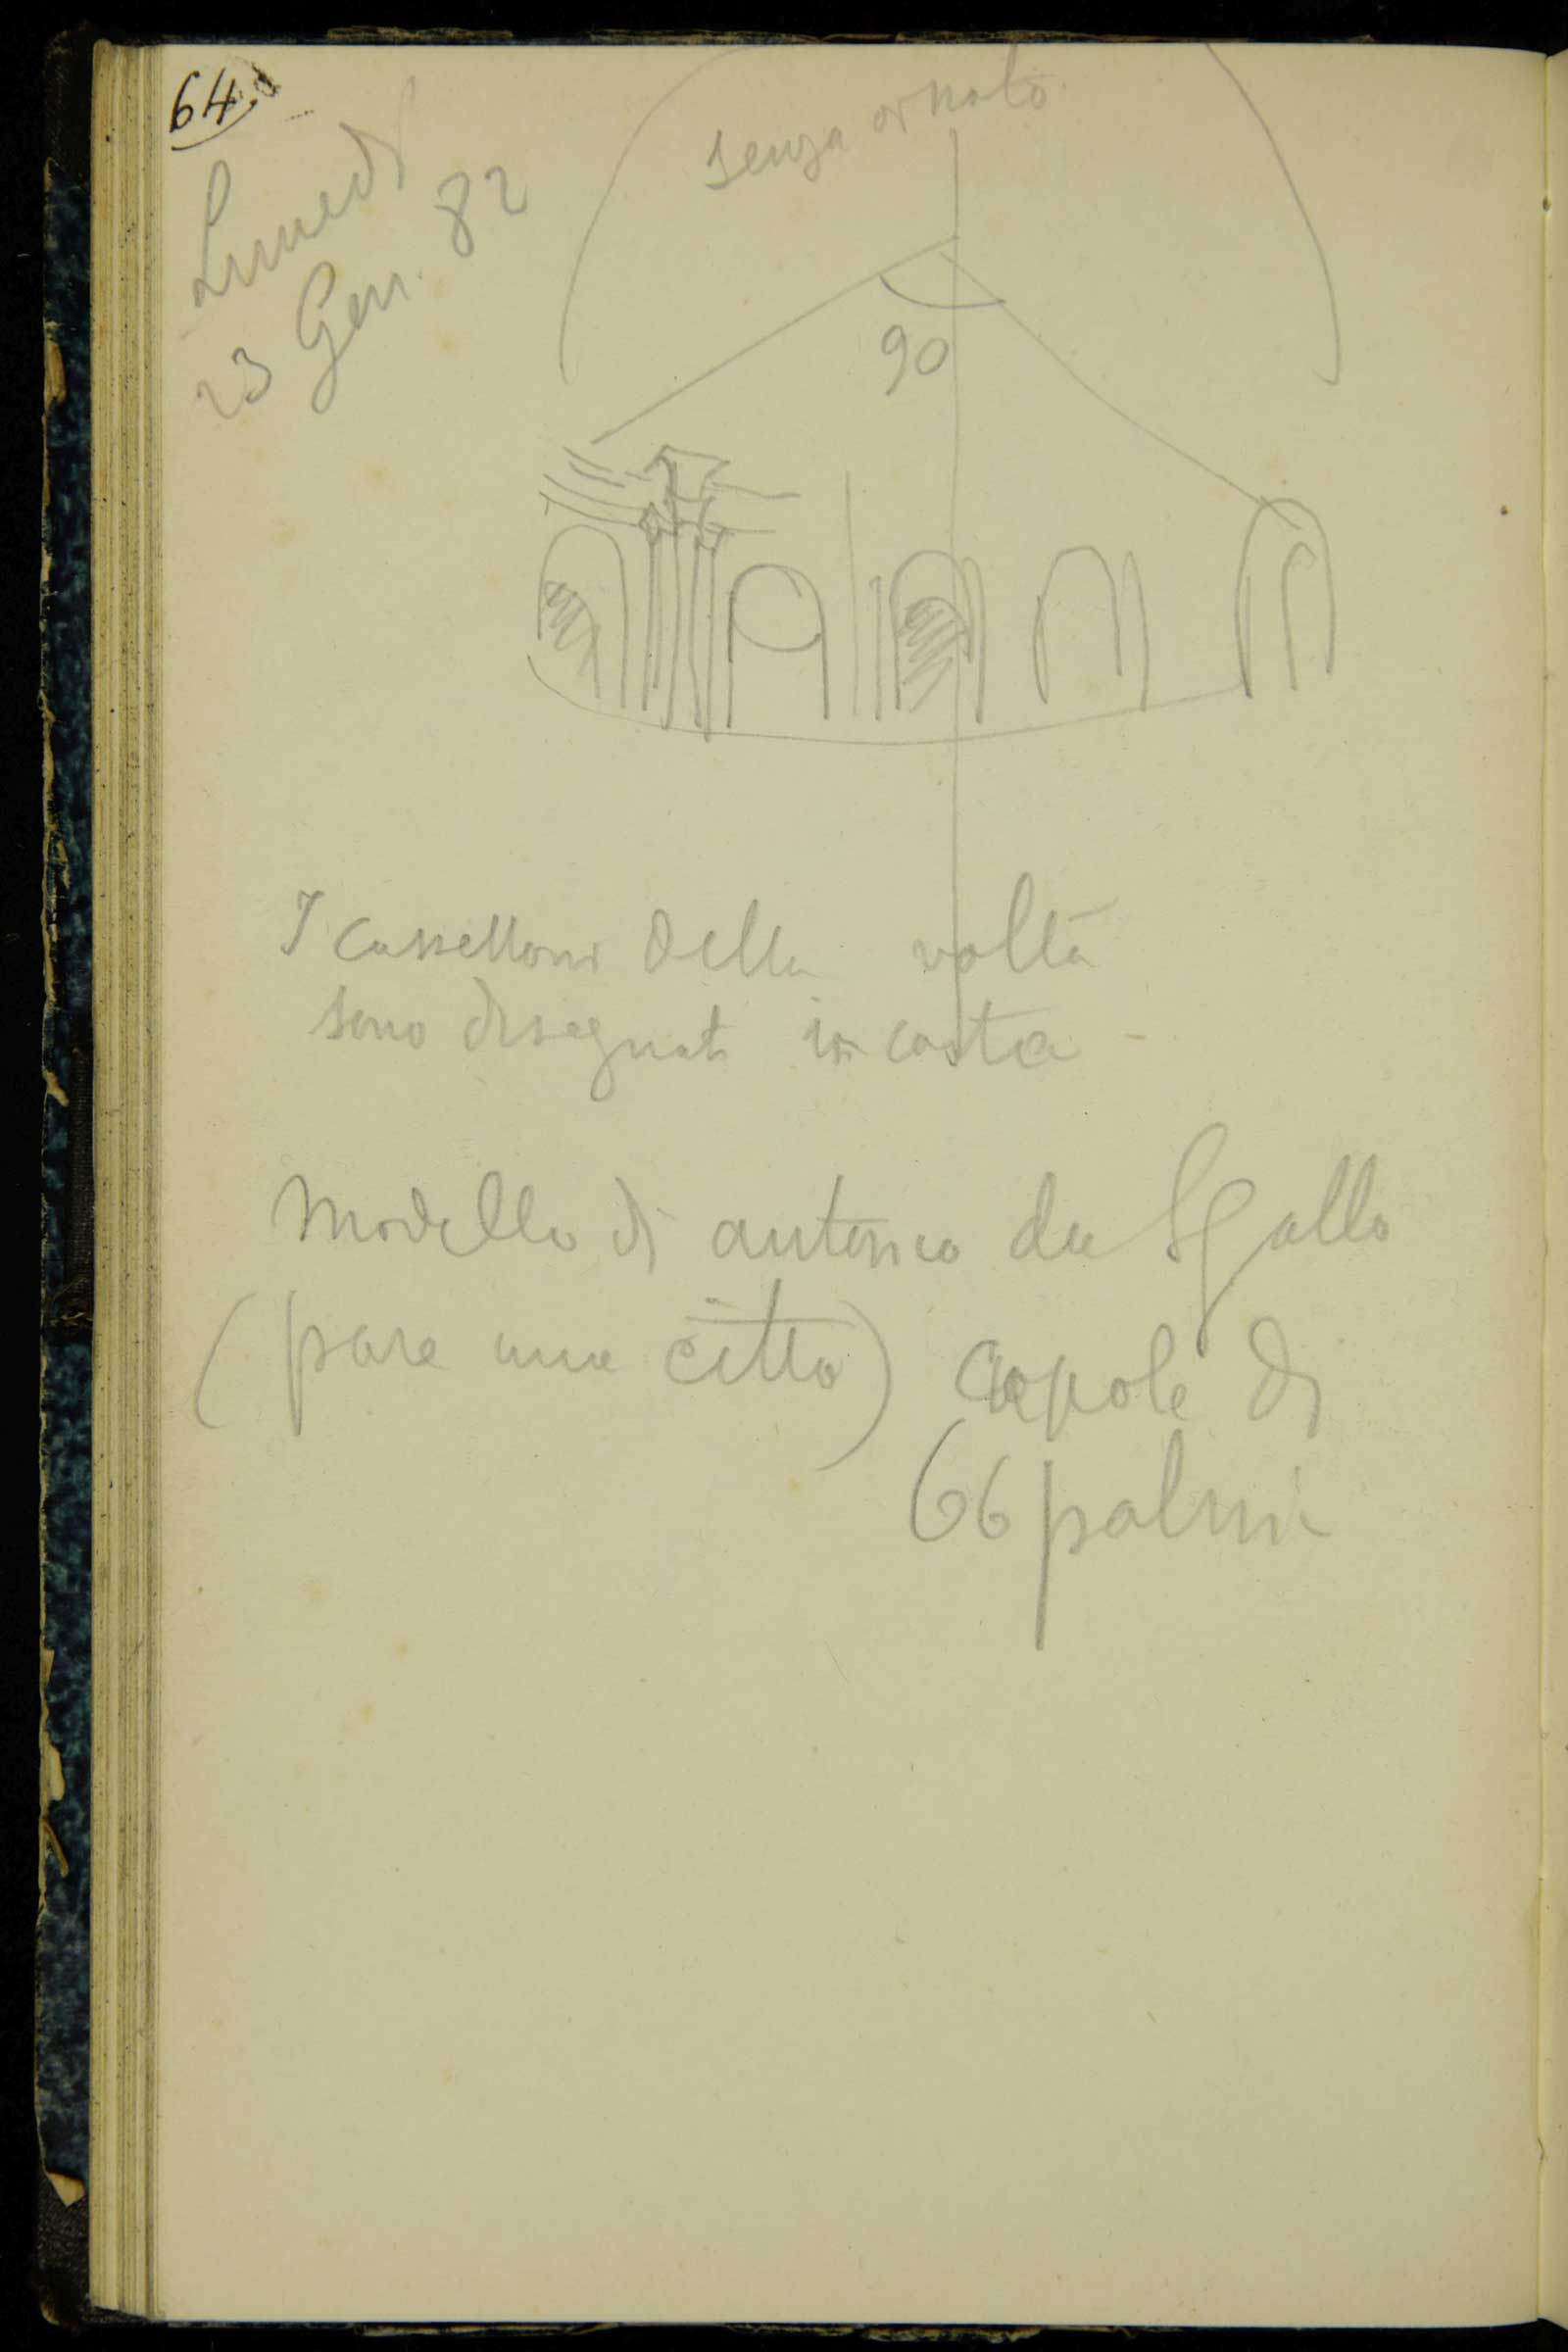 64.
Lunedì
23 Gen. 82
senza ornato
90
I cassettoni della volta
sono disegnati in carta -
Modello di antonio da Sgallo
(pare una città) cupole di
66 palmi